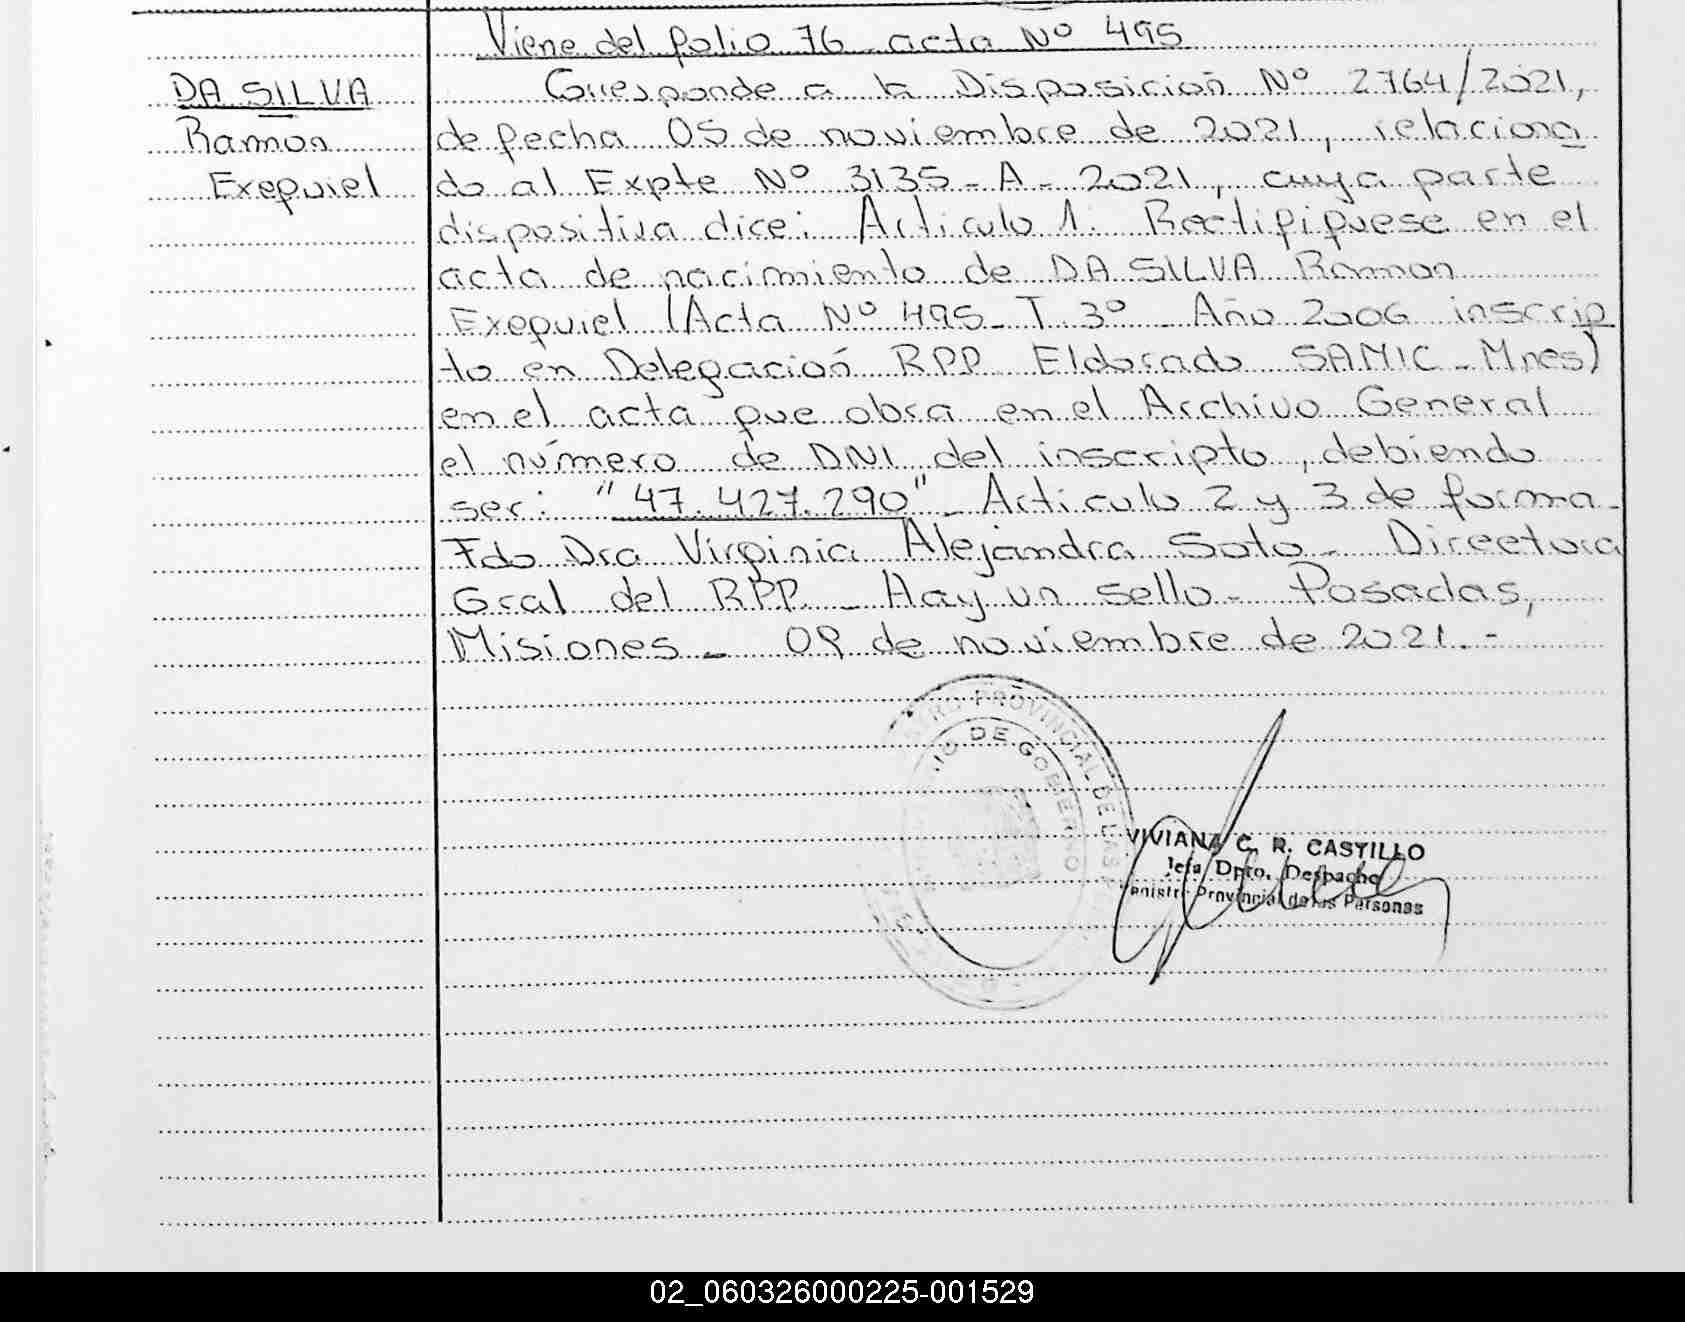 Viene del folio 76 acta Nº 495
DA SILVA
Ramon
Exequiel
Corresponde a la Disposición Nº 2764/2021,
de fecha 05 de noviembre de 2021, relaciona
do al Expte Nº 3135-A-2021, cuya parte
dispositiva dice: Articulo 1. Rectifiquese en el
acta de nacimiento de DA SILVA Ramon
Exequiel (Acta Nº 495-T 3º - Año 2006 inscrip
to en Delegación RPP Eldorado SAMIC-Mnes)
en el acta que obra en el Archivo General
el número de DNI del inscripto, debiendo
ser: "47.427.290" - Articulo 2 y 3 de forma-
Fdo Dra Virginia Alejandra Soto - Directora
Gral del RPP - Hay un sello - Posadas,
Misiones - 09 de noviembre de 2021.-
PROVINCIAL DE LAS
DE GOBIERNO
VIVIANA C. R. CASTILLO
Jefa Dpto. Despacho
Registro Provincial de las Personas
02_060326000225-001529